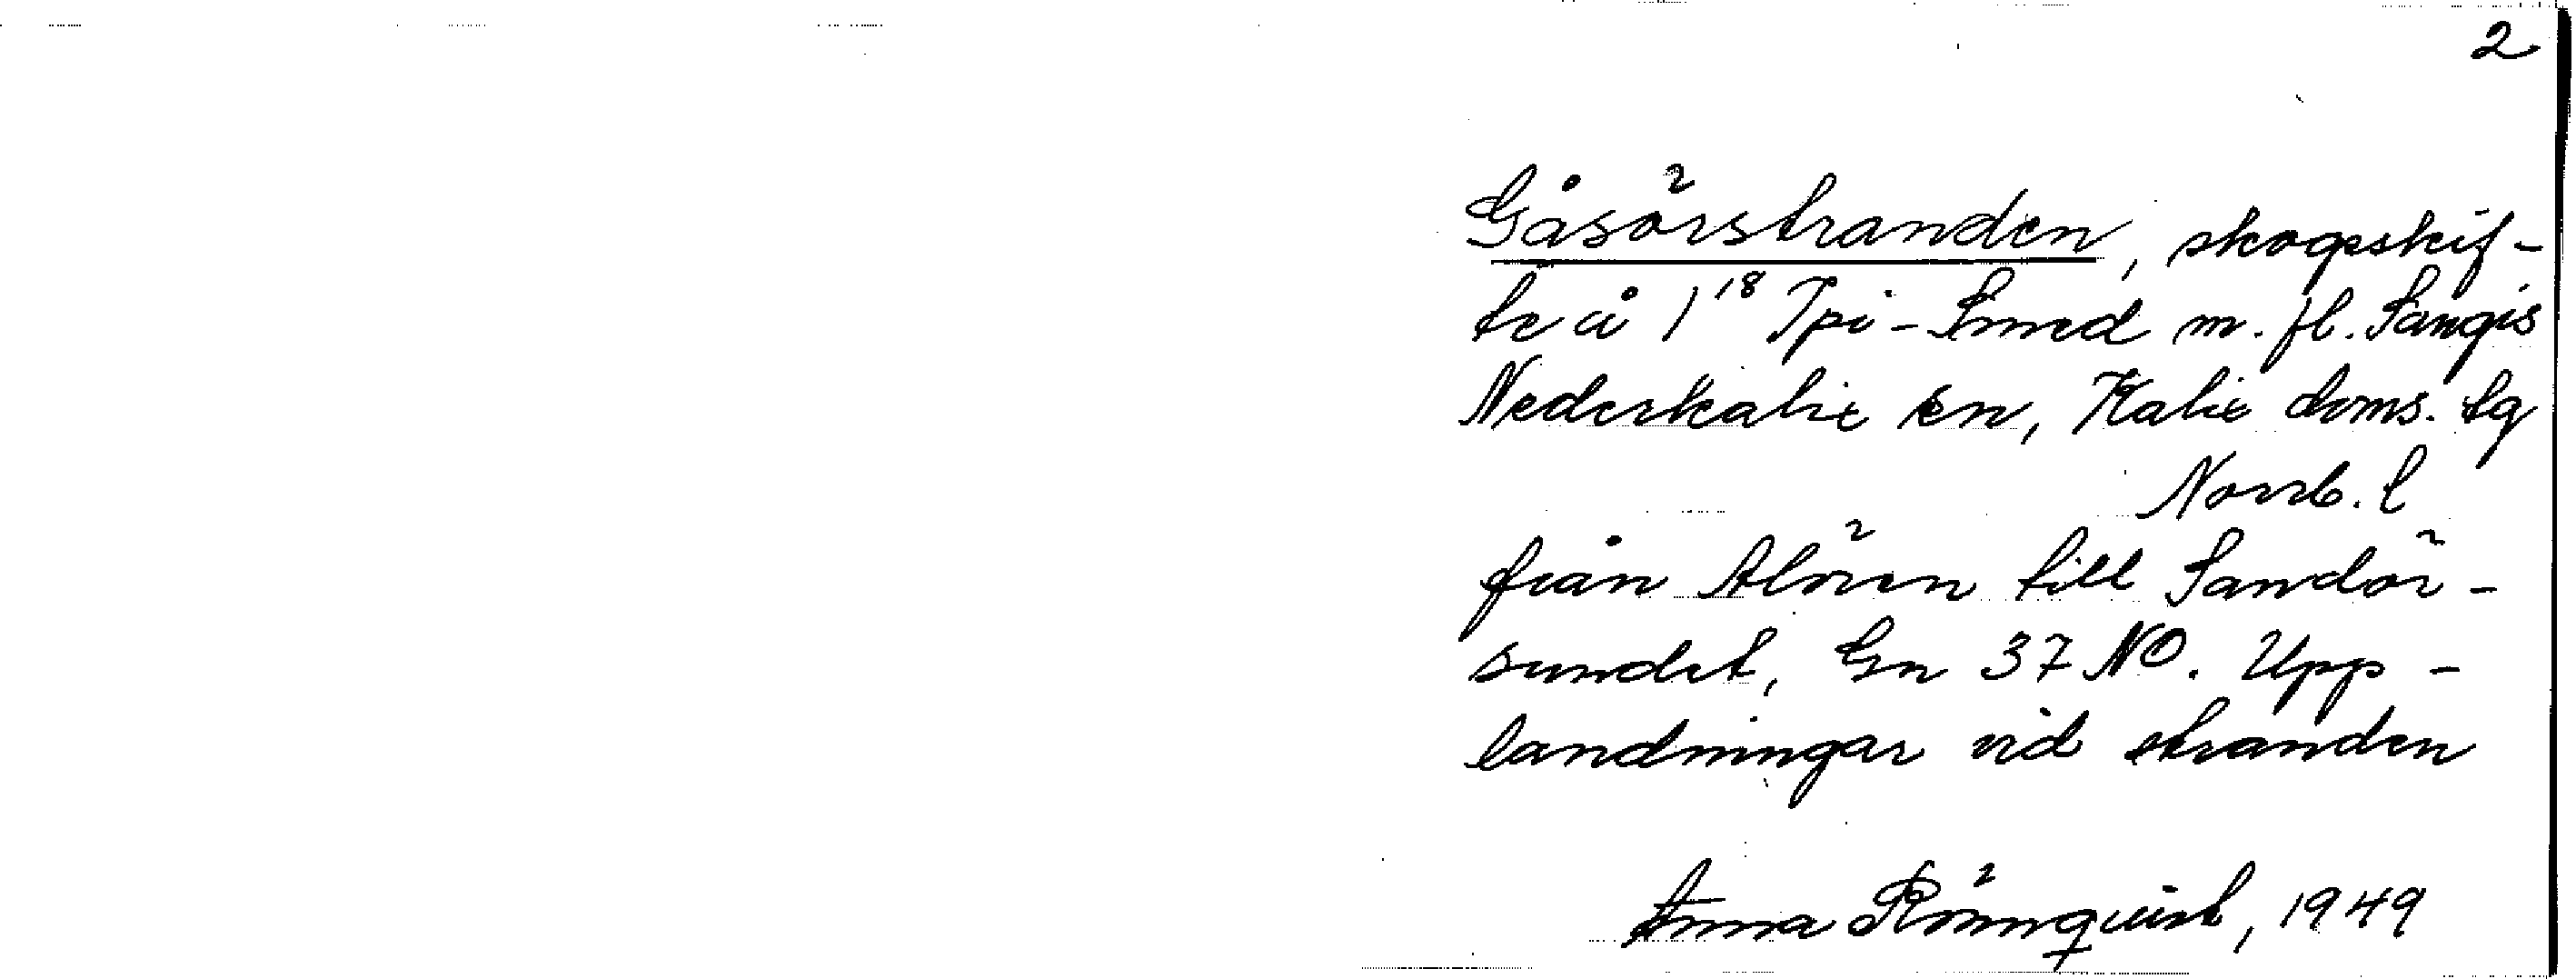 2
Gåsörstranden, skogsskif-
te å 1¹⁸ Ipi-Smed m. fl. Sangis
Nederkalix sn, Kalix doms. lg
Norrb. l
från Alören till Sandör-
sundet, Gn 37 NO. Upp-
landningar vid stranden
Anna Rönnqvist, 1949